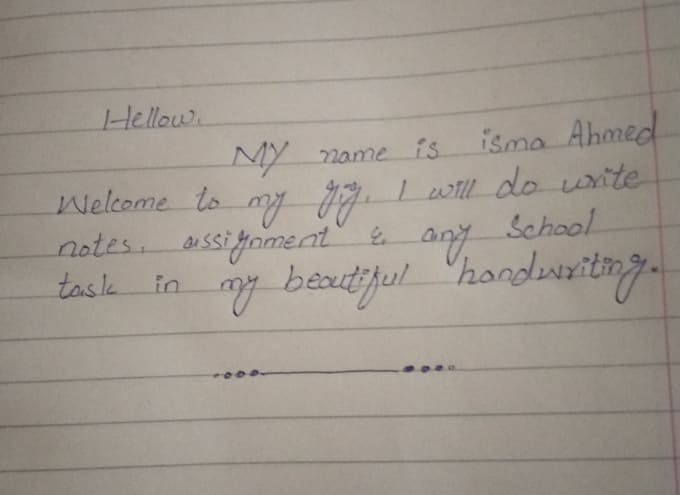 Hellow.
MY name is isma Ahmed
Welcome to my gig. I will do write
notes, assignment & any School
task in my beautiful handwriting.